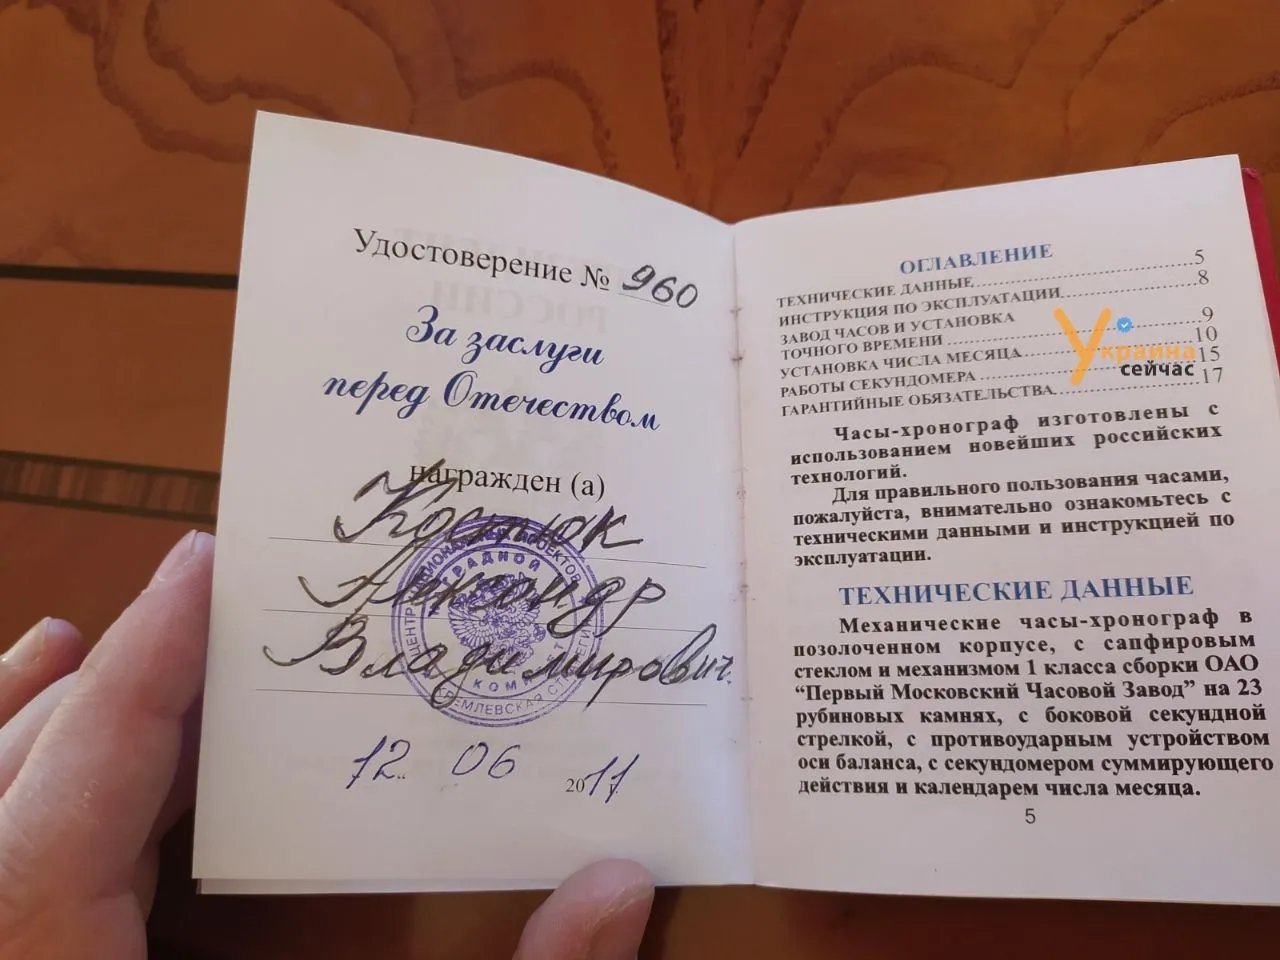 Удостоверение № 960
За заслуги
перед Отечеством
награжден (а)
Костюк
Александр
Владимирович
ЦЕНТР НАЦИОНАЛЬНЫХ ПРОЕКТОВ
НАГРАДНОЙ
КОМИТЕТ
КРЕМЛЕВСКАЯ СТРАТЕГИЯ
12. 06 2011 г.
ОГЛАВЛЕНИЕ
ТЕХНИЧЕСКИЕ ДАННЫЕ 5
ИНСТРУКЦИЯ ПО ЭКСПЛУАТАЦИИ 8
ЗАВОД ЧАСОВ И УСТАНОВКА
ТОЧНОГО ВРЕМЕНИ 9
УСТАНОВКА ЧИСЛА МЕСЯЦА 10
РАБОТЫ СЕКУНДОМЕРА 15
ГАРАНТИЙНЫЕ ОБЯЗАТЕЛЬСТВА 17
Украина
сейчас
Часы-хронограф изготовлены с
использованием новейших российских
технологий.
Для правильного пользования часами,
пожалуйста, внимательно ознакомьтесь с
техническими данными и инструкцией по
эксплуатации.
ТЕХНИЧЕСКИЕ ДАННЫЕ
Механические часы-хронограф в
позолоченном корпусе, с сапфировым
стеклом и механизмом 1 класса сборки ОАО
“Первый Московский Часовой Завод” на 23
рубиновых камнях, с боковой секундной
стрелкой, с противоударным устройством
оси баланса, с секундомером суммирующего
действия и календарем числа месяца.
5